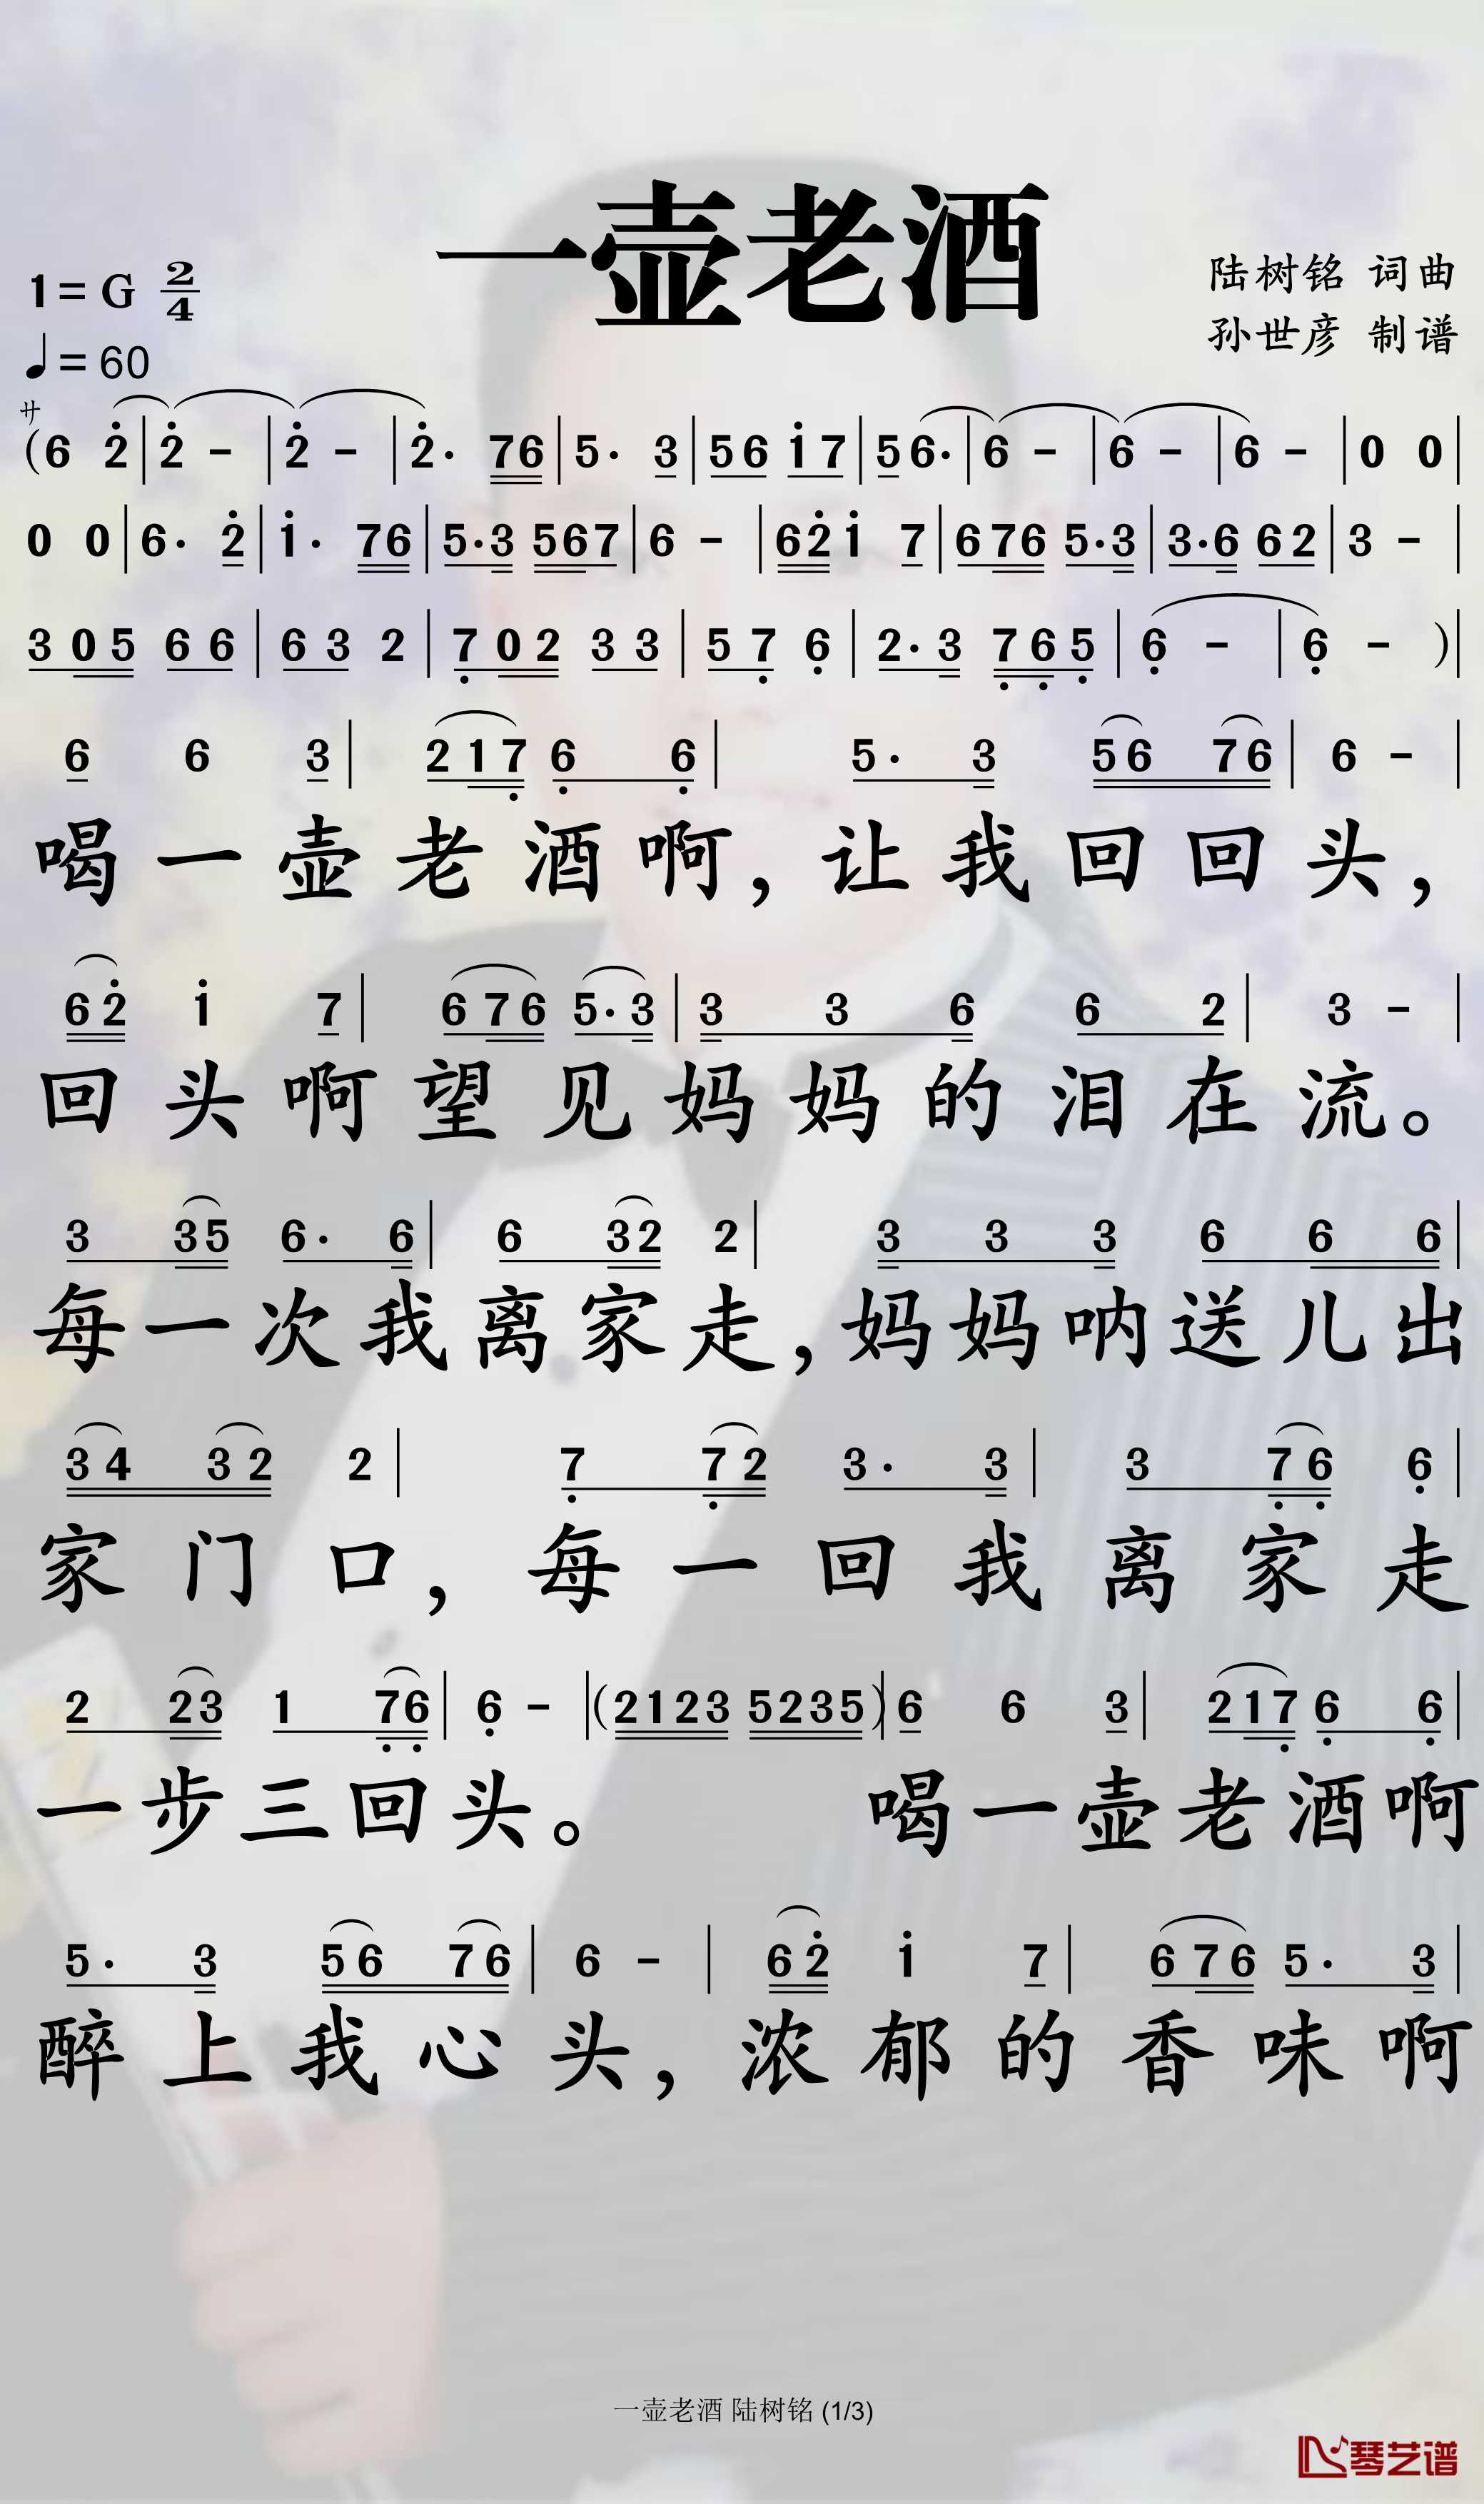 一壶老酒
1=G 2/4
陆树铭 词曲
♩=60
孙世彦 制谱
サ
(6 2̇|2̇ -|2̇ -|2̇· 76|5· 3|56 1̇7|56·|6 -|6 -|6 -|0 0|
0 0|6· 2̇|1̇· 76|5·3 567|6 -|62̇1̇ 7|676 5·3|3·6 62|3 -|
305 66|63 2|7̣02 33|57̣ 6̣|2·3 7̣6̣5̣|6̣ -|6̣ -)|
6 6 3|217̣ 6̣ 6̣|5· 3 56 76|6 -|
喝一壶老酒啊,让我回回头,
62̇ 1̇ 7|676 5·3|3 3 6 6 2|3 -|
回头啊望见妈妈的泪在流。
3 35 6· 6|6 32 2|3 3 3 6 6 6|
每一次我离家走,妈妈呐送儿出
34 32 2|7̣ 7̣2 3· 3|3 7̣6̣ 6̣|
家门口,每一回我离家走
2 23 1 7̣6̣|6̣ -|(2123 5235)|6 6 3|217̣ 6̣ 6̣|
一步三回头。 喝一壶老酒啊
5· 3 56 76|6 -|62̇ 1̇ 7|676 5· 3|
醉上我心头,浓郁的香味啊
一壶老酒 陆树铭 (1/3)
琴艺谱